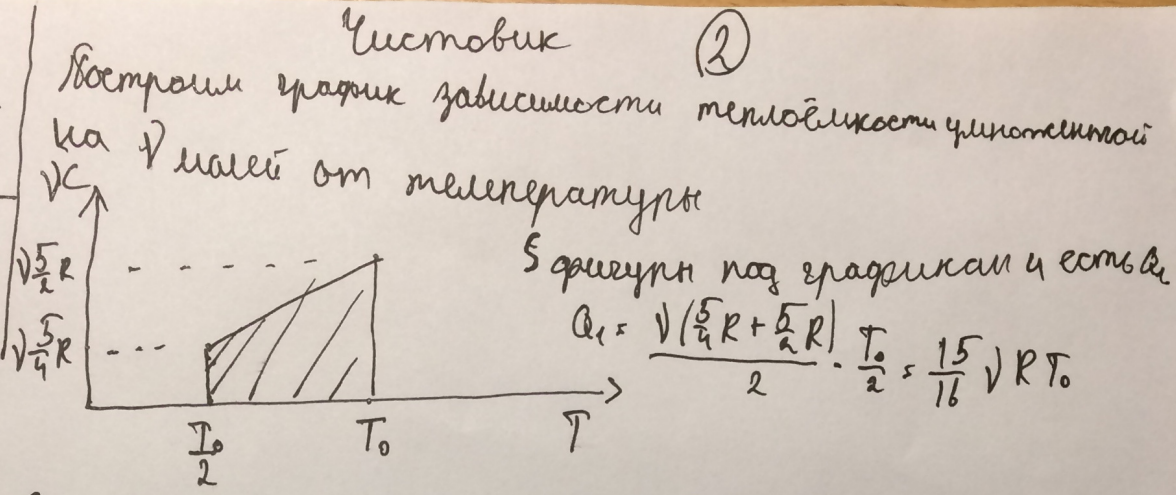 Чистовик ②
Построим график зависимости теплоёмкости умноженной
на ν молей от температуры
νC
ν 5/2 R
ν 5/4 R
T₀/2
T₀
T
S фигуры под графиком и есть Q₁
Q₁ = ν(5/4 R + 5/2 R)/2 · T₀/2 = 15/16 ν R T₀